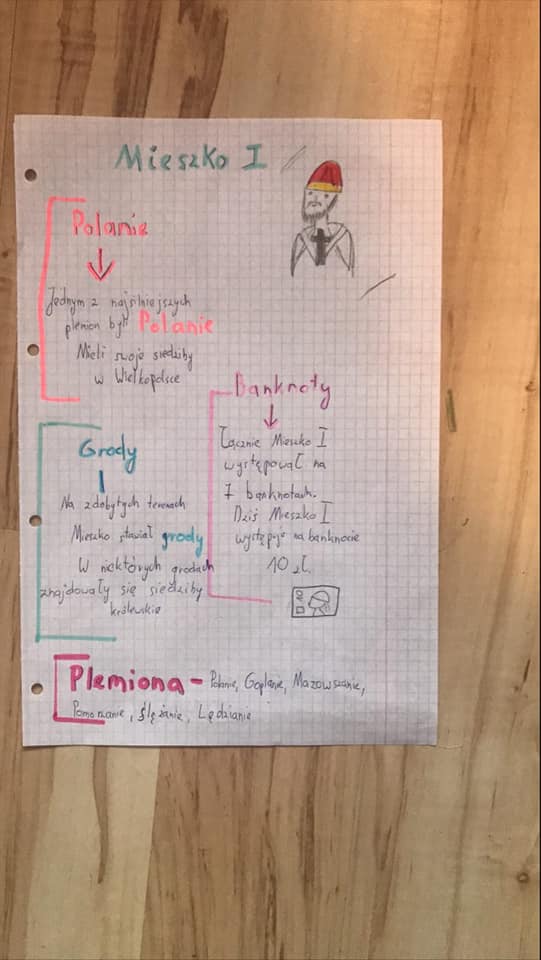 Mieszko I
Polanie
Jednym z najsilniejszych
plemion byli Polanie
Mieli swoje siedziby
w Wielkopolsce
Grody
Na zdobytych terenach
Mieszko stawiał grody
W niektórych grodach
znajdowały się siedziby
królewskie
Banknoty
Łącznie Mieszko I
występował na
7 banknotach.
Dziś Mieszko I
występuje na banknocie
10 zł.
Plemiona - Polanie, Goplanie, Mazowszanie,
Pomorzanie, Ślężanie, Lędzianie